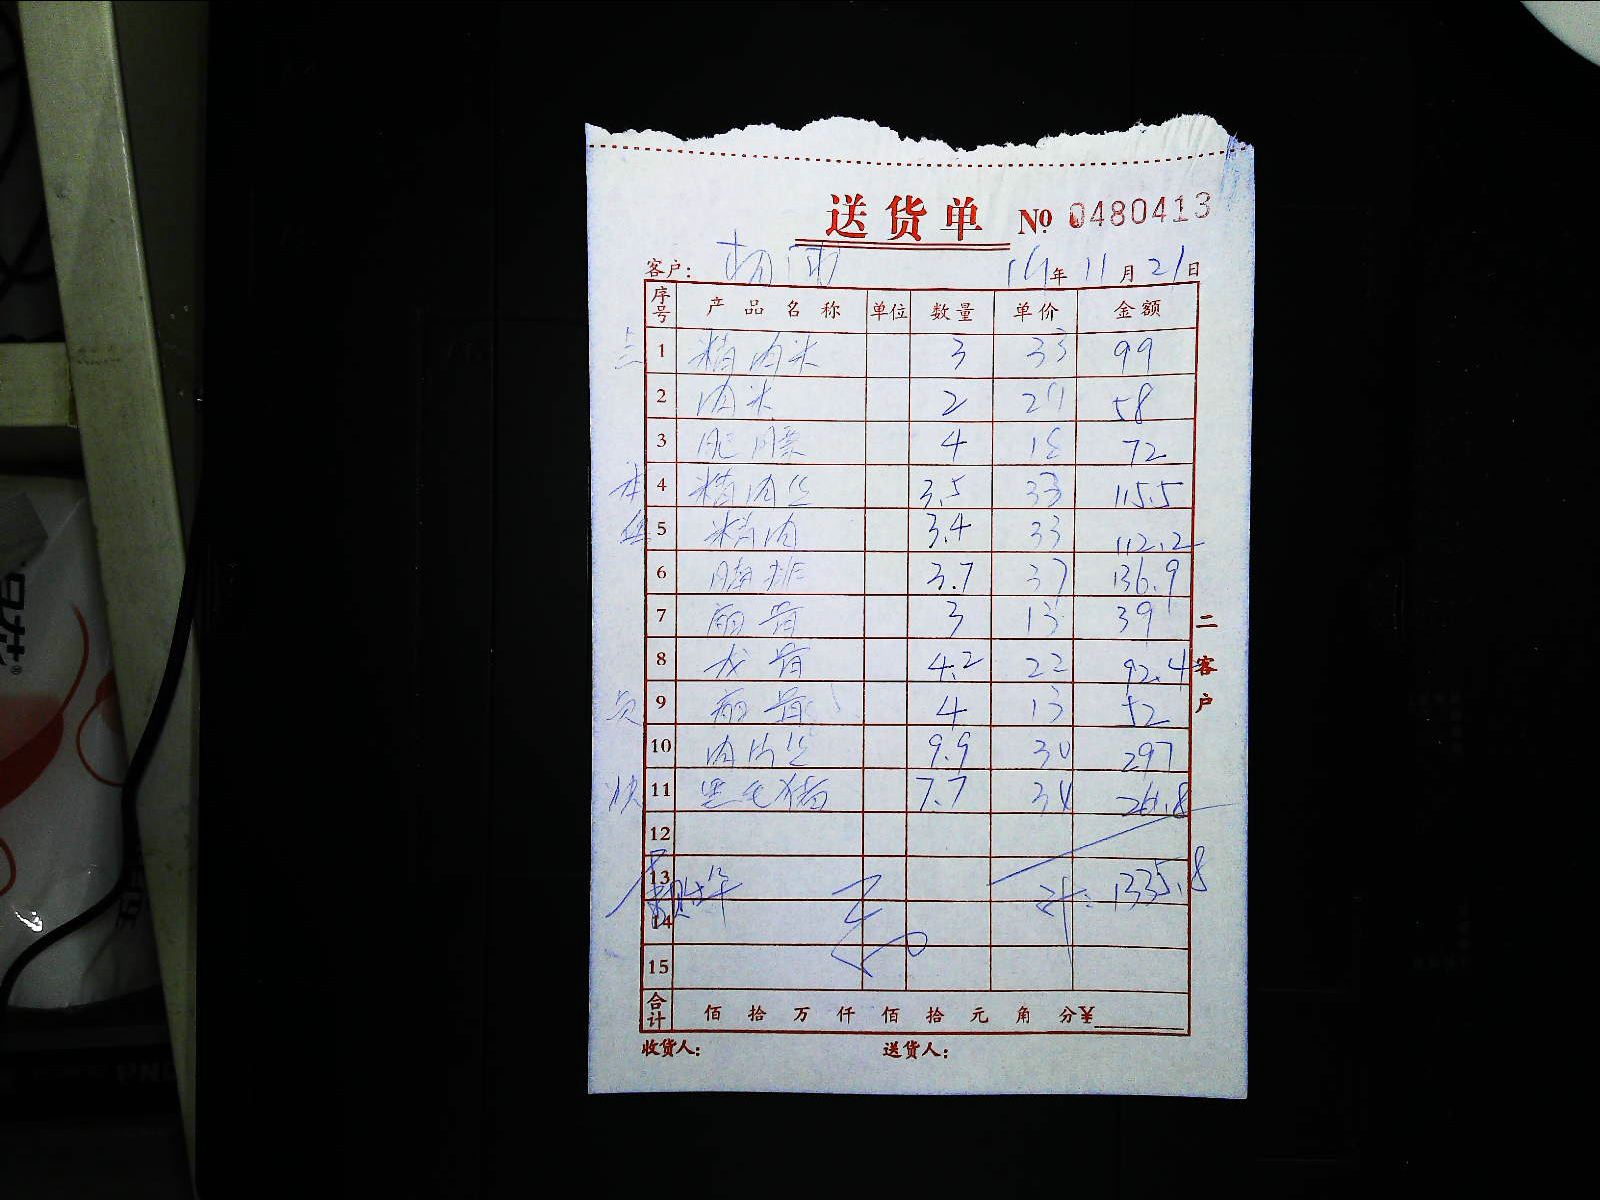 送货单 № 0480413
客户： 年 11 月 21 日
序号 产品名称 单位 数量 单价 金额
1 精肉米 3 33 99
2 肉米 2 29 58
3 肥膘 4 18 72
4 精肉丝 3.5 33 115.5
5 精肉 3.4 33 112.2
6 排 3.7 37 136.9
7 扇骨 3 13 39
8 龙骨 4.2 22 92.4
9 扇骨 4 13 52
10 肉片丝 9.9 30 297
11 黑毛猪 7.7 34 261.8
12
13 计：1335.8
14
15
合计 佰 拾 万 仟 佰 拾 元 角 分¥
收货人： 送货人：
二客户